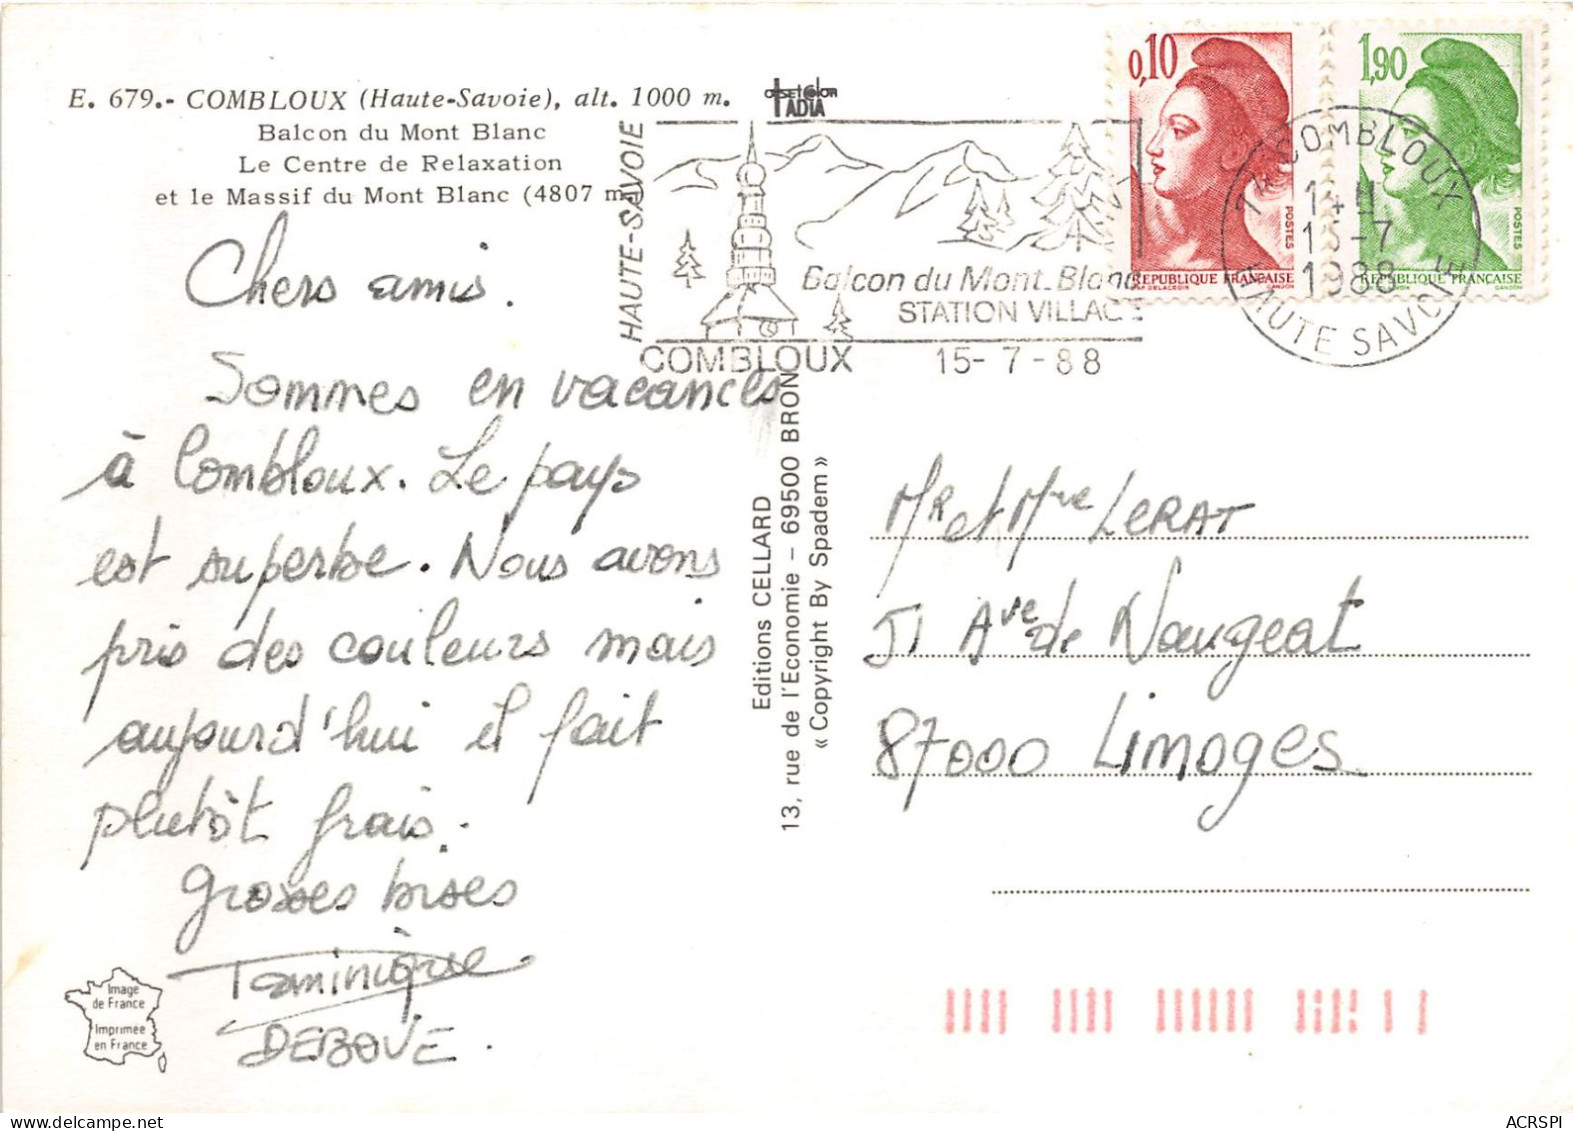 E. 679.- COMBLOUX (Haute-Savoie), alt. 1000 m.
Balcon du Mont Blanc
Le Centre de Relaxation
et le Massif du Mont Blanc (4807 m)
offset color
IADIA
HAUTE-SAVOIE
Balcon du Mont-Blanc
STATION VILLAGE
COMBLOUX 15-7-88
0,10
POSTES
REPUBLIQUE FRANÇAISE
AP DELACROIX GANDON
1,90
POSTES
REPUBLIQUE FRANÇAISE
GANDON
74 COMBLOUX
14 H
15-7
1988
HAUTE SAVOIE
Chers amis.
Sommes en vacances
à Combloux. Le pays
est superbe. Nous avons
pris des couleurs mais
aujourd'hui il fait
plutôt frais.
Grosses bises
Dominique
DEBOVE.
Editions CELLARD
13, rue de l'Economie – 69500 BRON
« Copyright By Spadem »
Mr et Mme LERAT
51 Ave de Naugeat
87000 Limoges
Image
de France
Imprimée
en France
ACRSPI